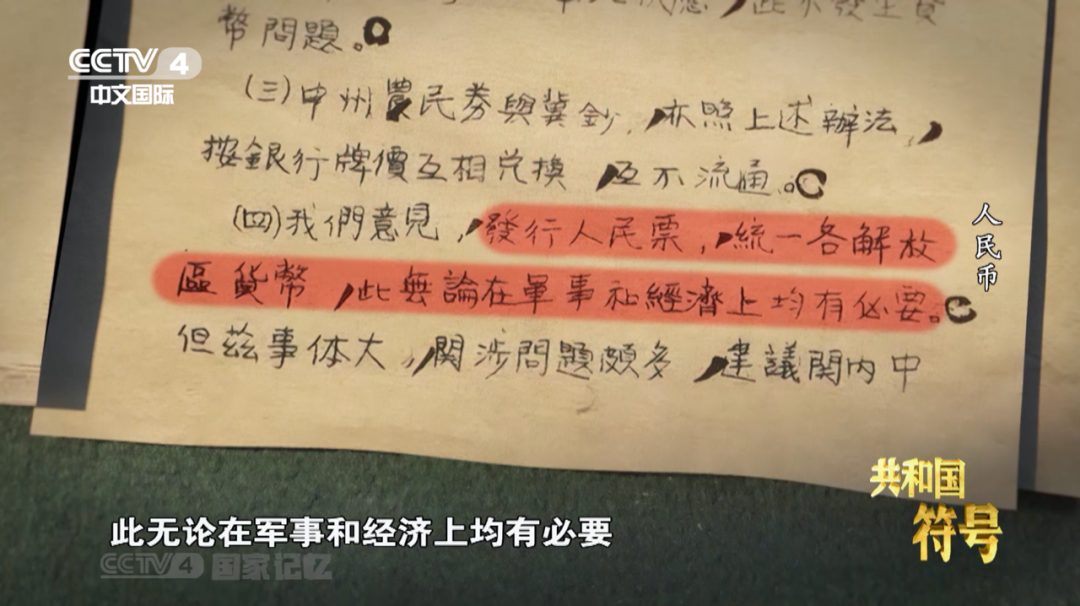 此不發生貨
幣問題。
CCTV 4
中文国际
(三)中州農民券與冀鈔,亦照上述辦法,
按銀行牌價互相兑換,互不流通。
(四)我們意見,發行人民票,統一各解放
區貨幣,此無論在軍事和經濟上均有必要。
但茲事体大,関涉問題頗多,建議関内中
人民币
共和国
符号
此无论在军事和经济上均有必要
CCTV 4 国家记忆